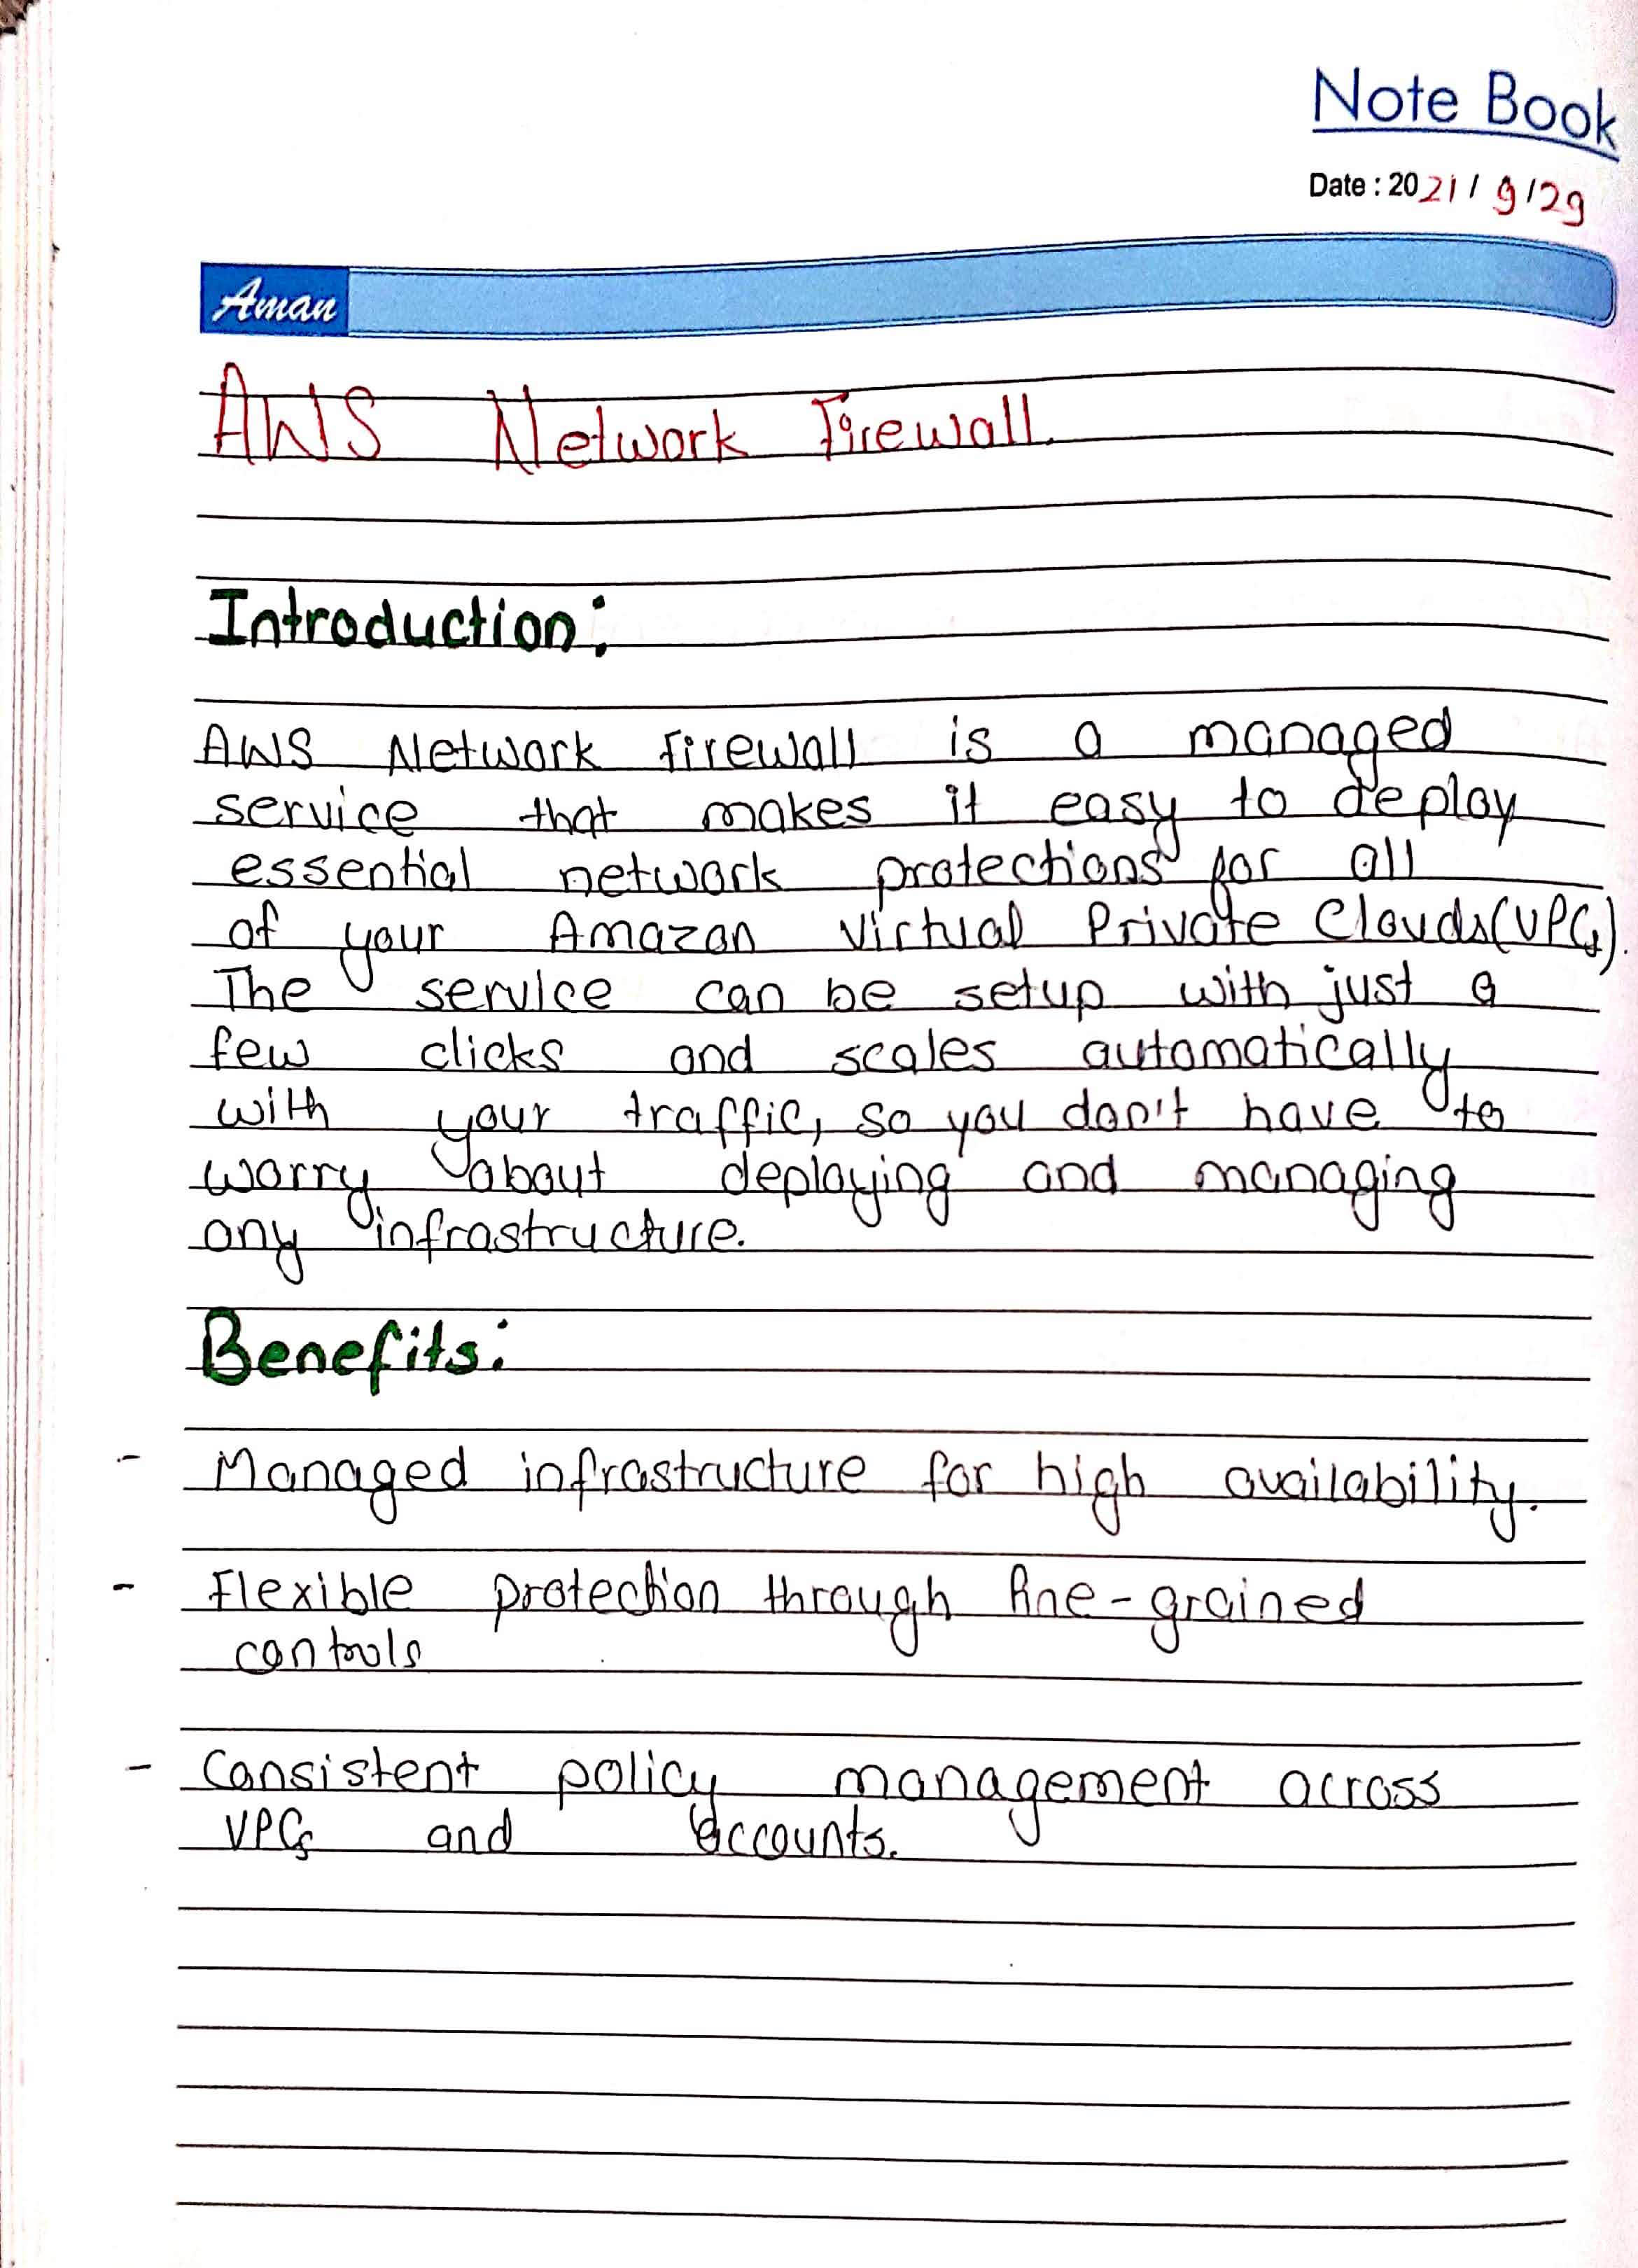 Note Book
Date : 2021 / 9/29
Aman
AWS Network Firewall.
Introduction:
AWS Network Firewall is a managed
service that makes it easy to deploy
essential network protections for all
of your Amazon Virtual Private Clouds(VPCs).
The service can be setup with just a
few clicks and scales automatically
with your traffic, so you don't have to
worry about deploying and managing
any infrastructure.
Benefits:
- Managed infrastructure for high availability.
- Flexible protection through fine-grained
controls
- Consistent policy management across
VPCs and accounts.